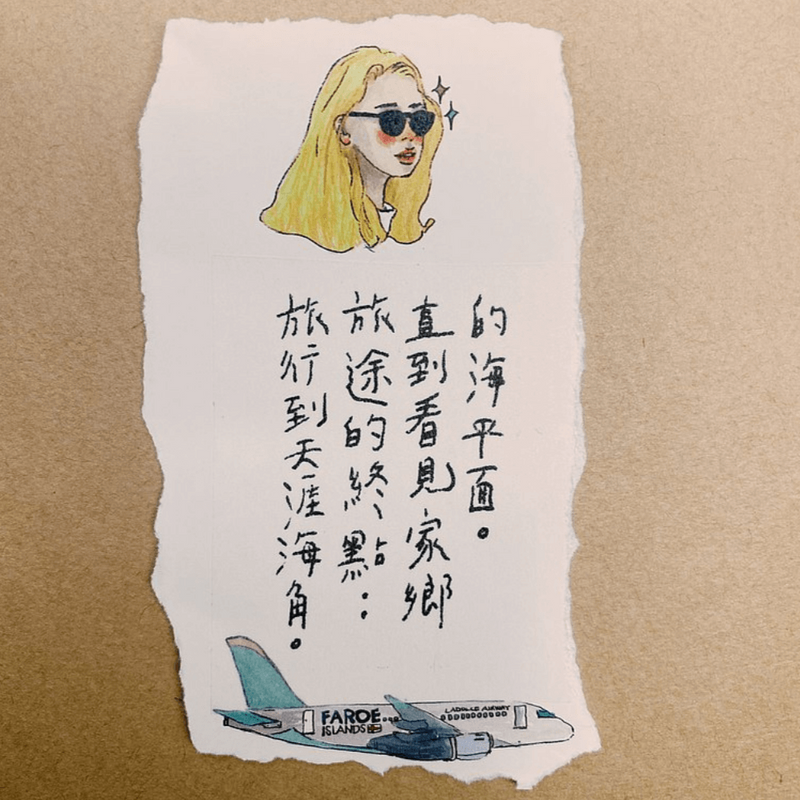 旅行到天涯海角。
旅途的終點：
直到看見家鄉
的海平面。
FAROE...
ISLANDS
AIRWAY